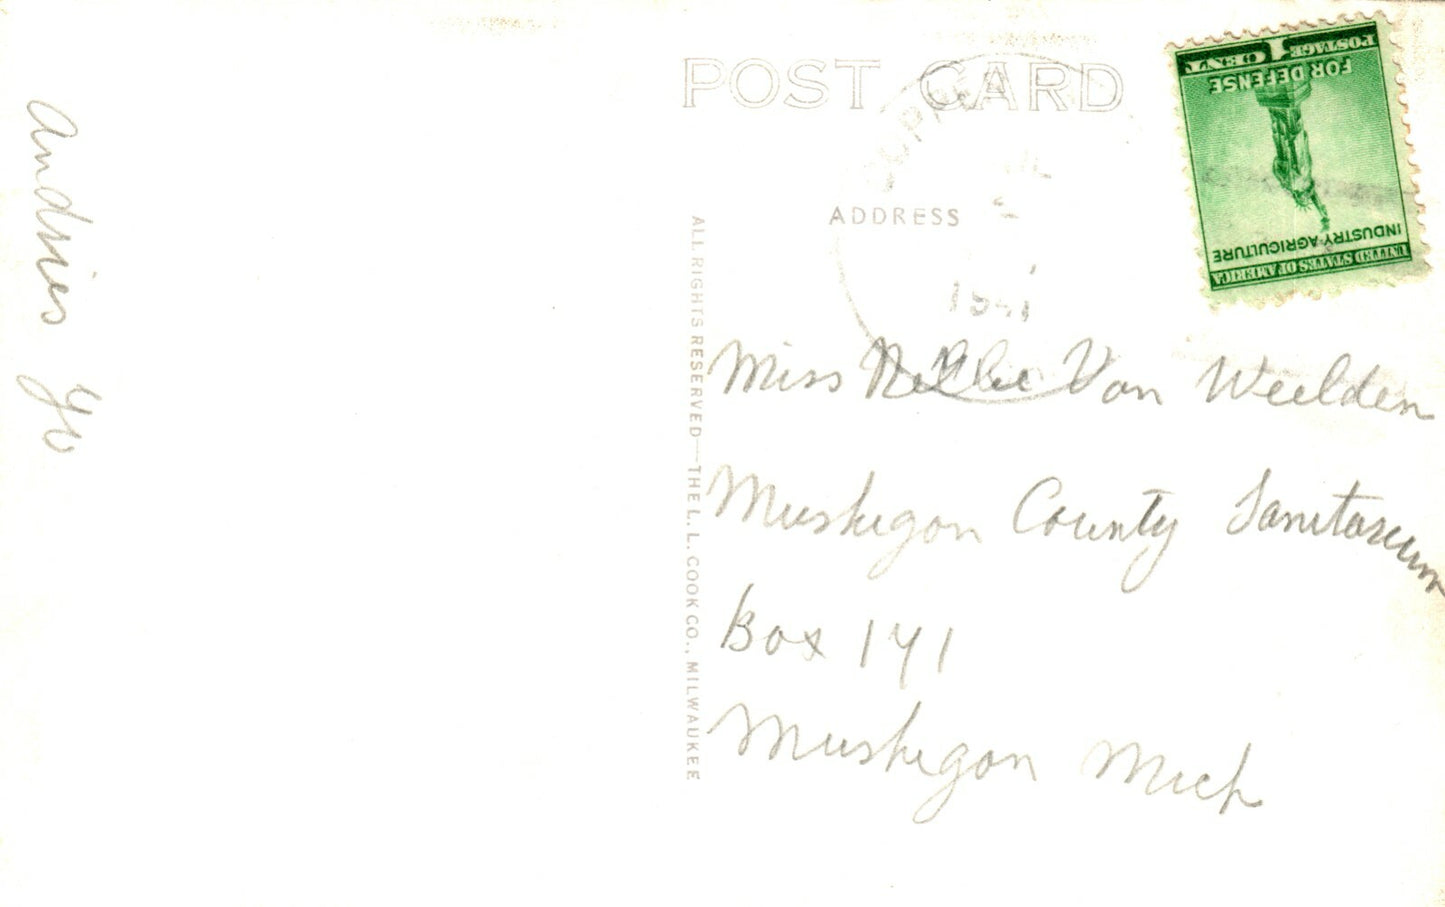 POST CARD
ADDRESS
1941
1 CENT
POSTAGE
FOR DEFENSE
INDUSTRY-AGRICULTURE
UNITED STATES OF AMERICA
Miss Nellie Van Weelden
Muskegon County Sanitarium
Box 141
Muskegon Mich
ALL RIGHTS RESERVED—THE L. L. COOK CO., MILWAUKEE
Andries